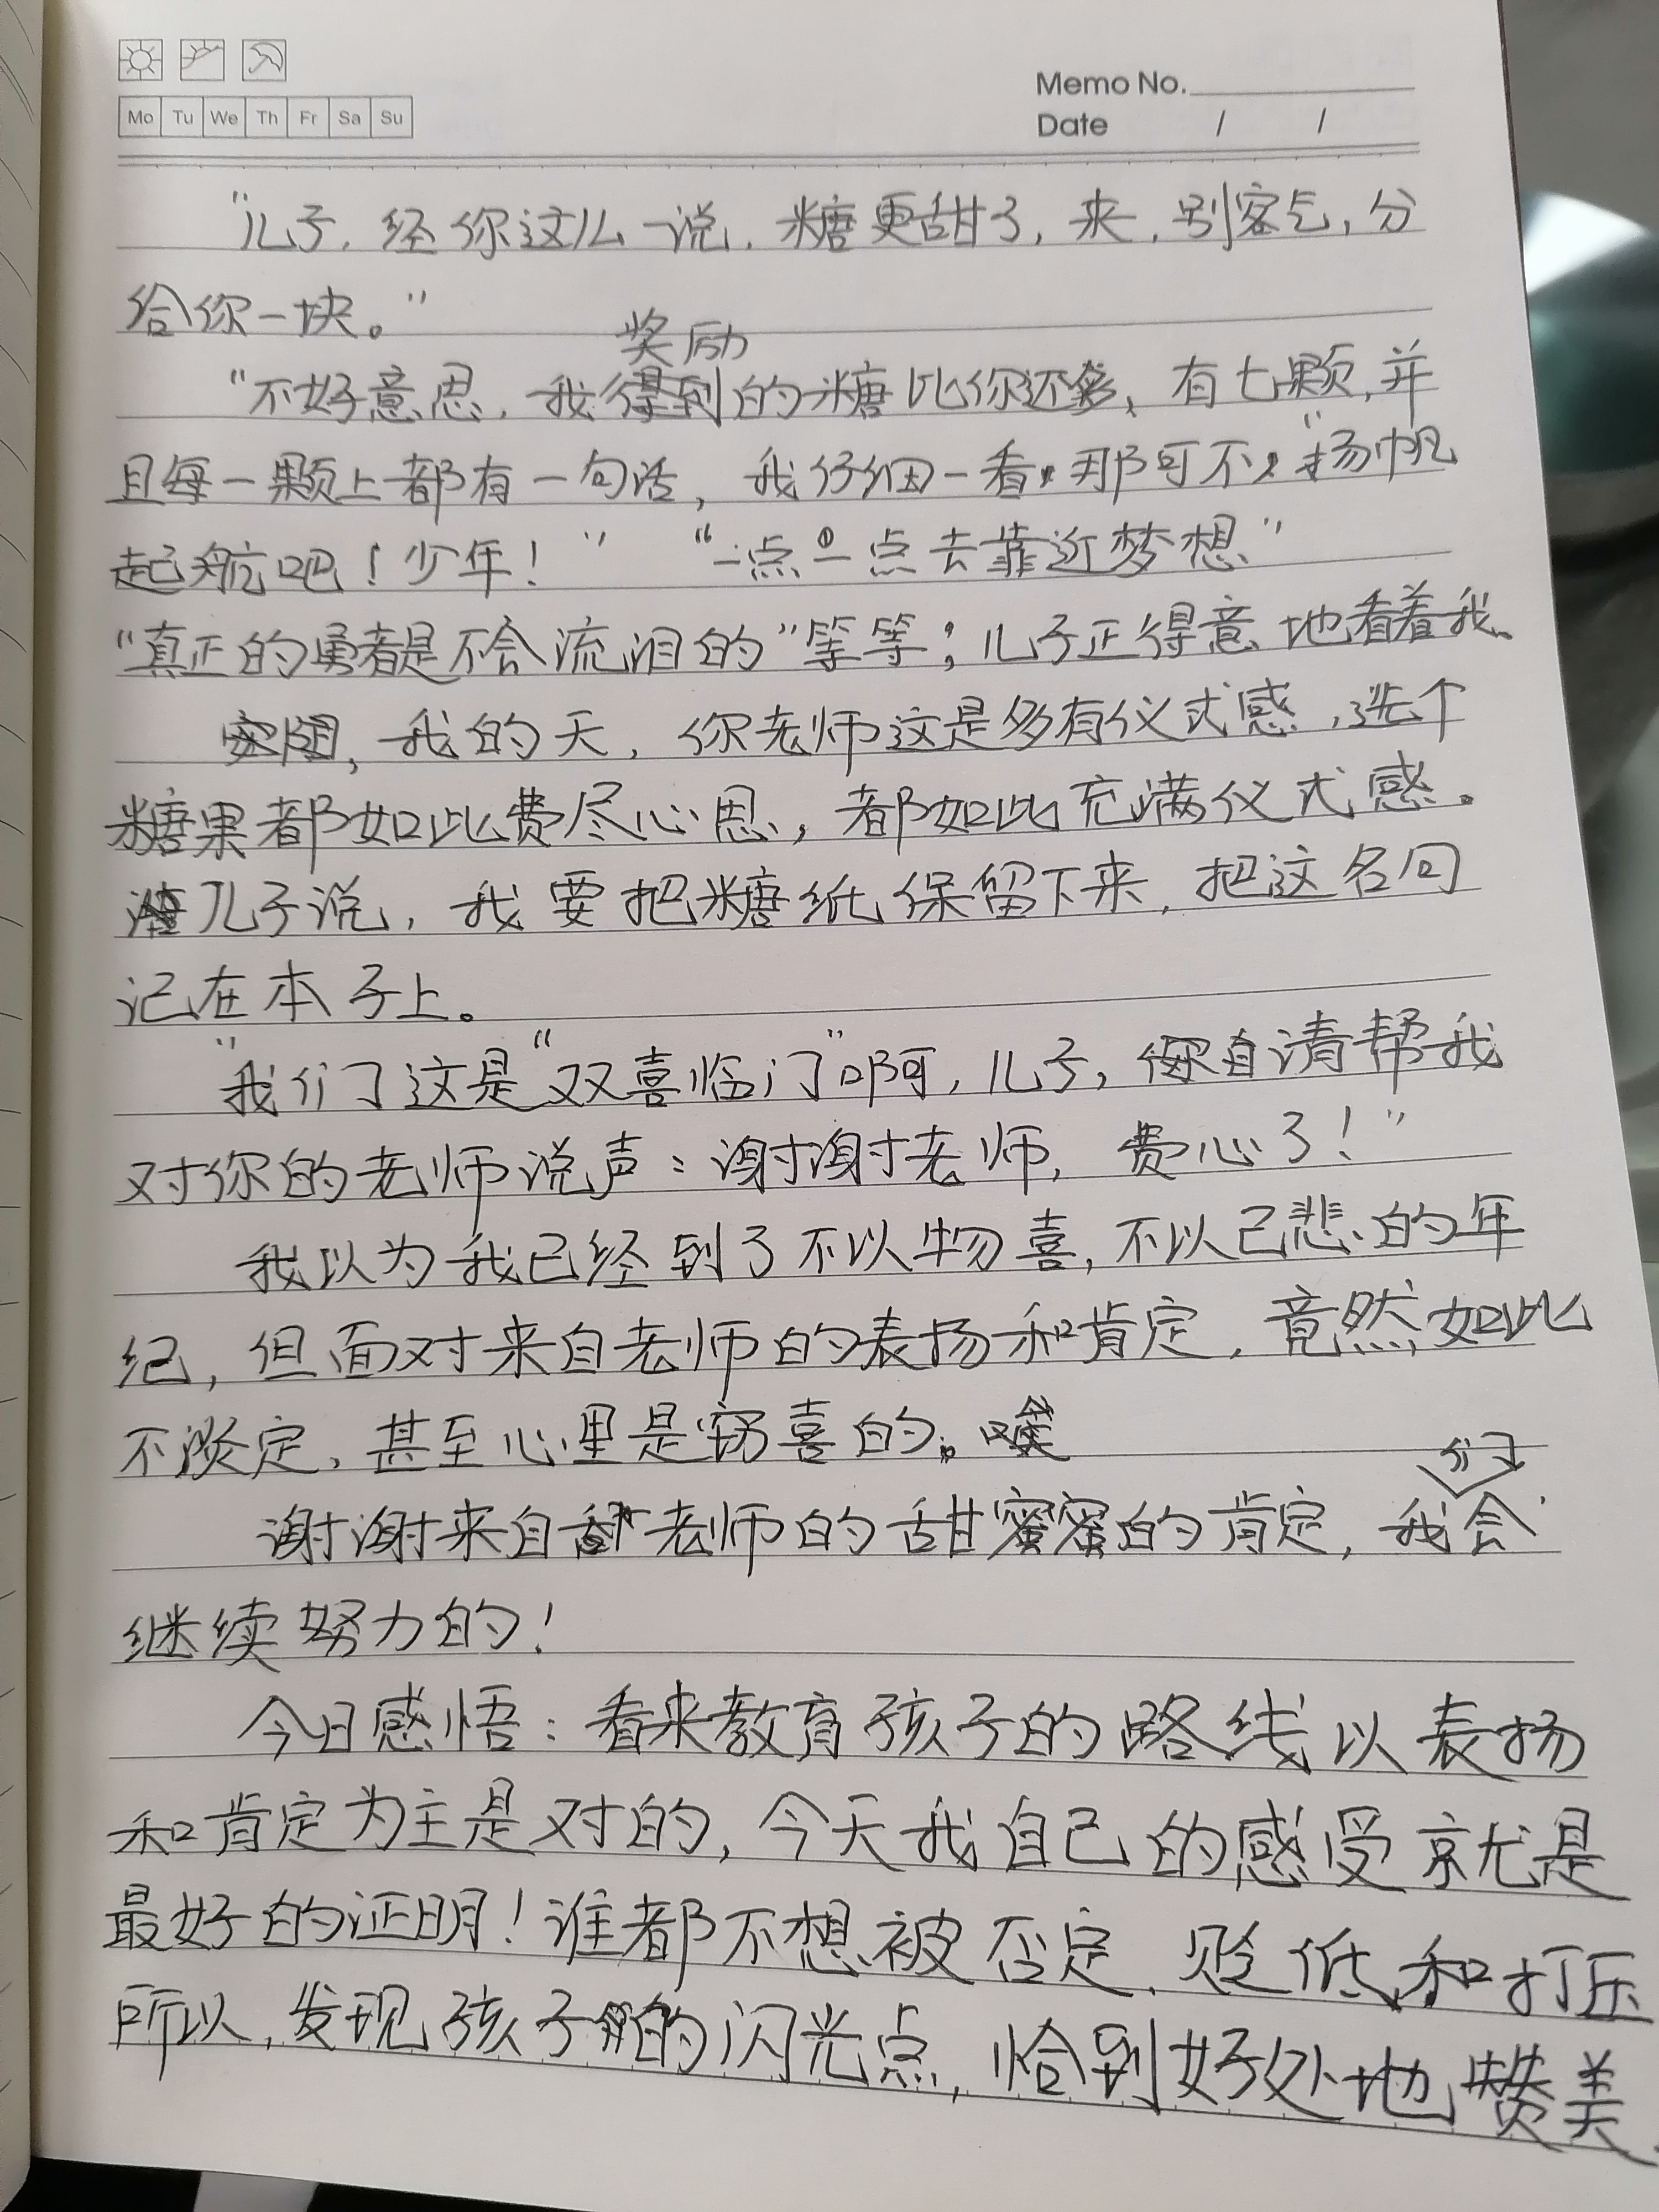 Memo No.
Mo Tu We Th Fr Sa Su
Date / /
"儿子,经你这么一说,糖更甜了,来,别客气,分
给你一块。"
奖励
"不好意思,我得到的糖比你还多、有七颗,并
且每一颗上都有一句话,我仔细一看,那可不,"扬帆
起航吧!少年!" "一点一点去靠近梦想"
"真正的勇者是不会流泪的"等等;儿子正得意地看着我。
我的天,你老师这是多有仪式感,选个
糖果都如此费尽心思,都如此充满仪式感。
儿子说,我要把糖纸保留下来,把这名句
记在本子上。
"我们了这是"双喜临门"啊,儿子,你自请帮我
对你的老师说声:谢谢老师,费心了!"
我以为我已经到了不以物喜,不以己悲的年
纪,但面对来自老师的表扬和肯定,竟然如此
不淡定,甚至心里是窃喜的。嘿
们
谢谢来自老师的甜蜜蜜的肯定,我会
继续努力的!
今日感悟:看来教育孩子的路线以表扬
和肯定为主是对的,今天我自己的感受就是
最好的证明!谁都不想被否定、贬低和打压
所以,发现孩子的闪光点,恰到好处地赞美.